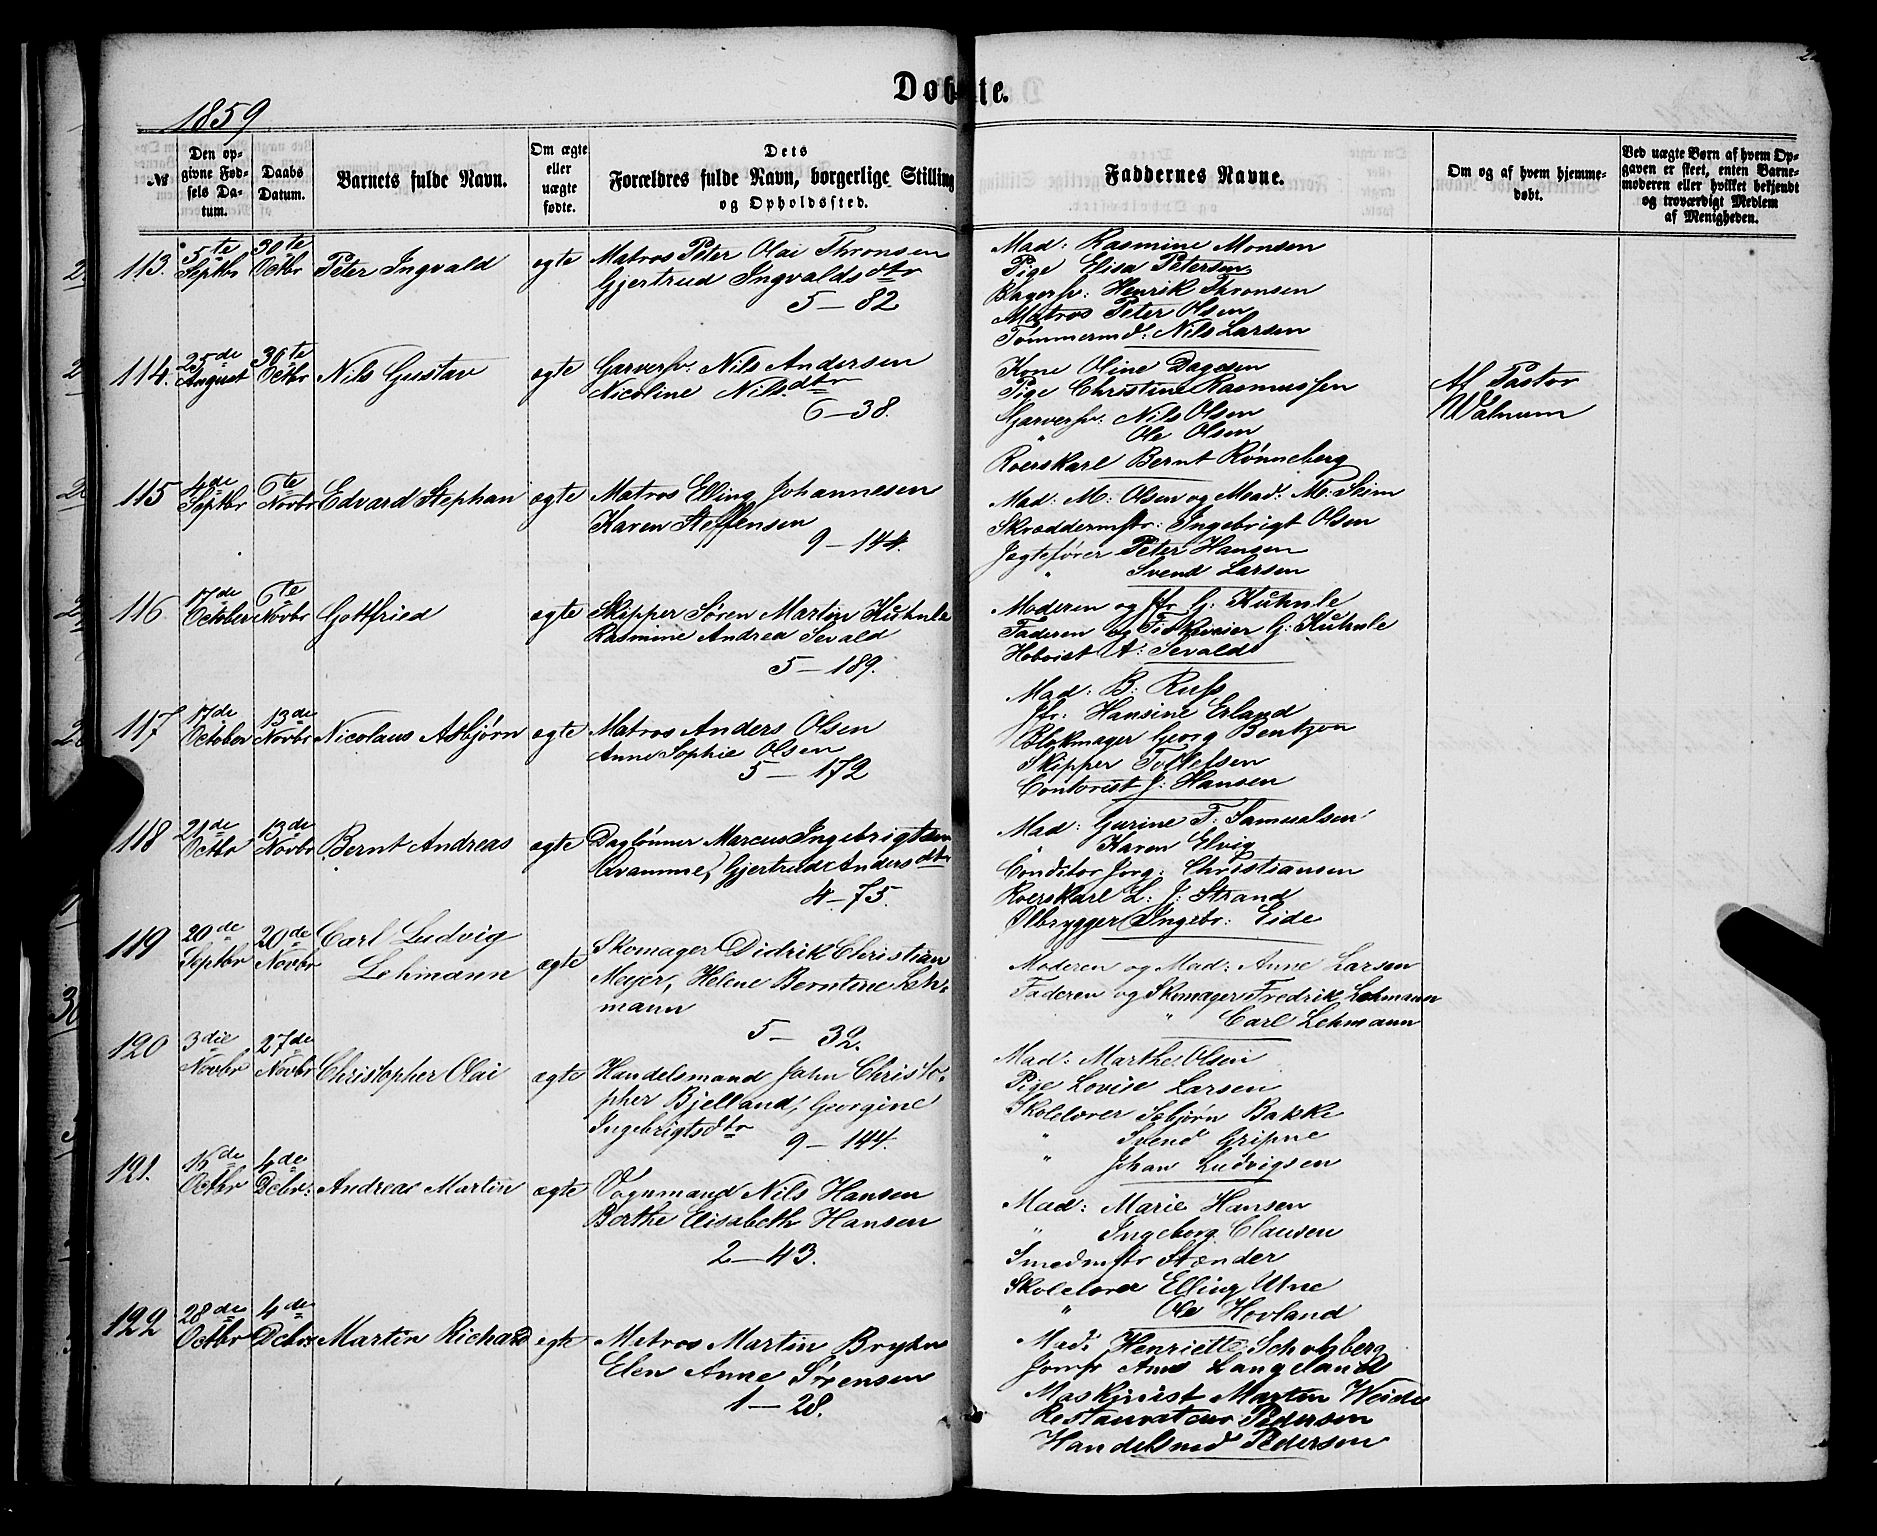 Døbte.
1859
№
Den opgivne Fødsels Datum.
Daabs Datum.
Barnets fulde Navn.
Om ægte eller uægte fødte.
Dets Forældres fulde Navn, borgerlige Stilling og Opholdssted.
Faddernes Navne.
Om og af hvem hjemmedøbt.
Ved uægte Børn af hvem Opgaven er skeet, enten Barnemoderen eller hvilket bekjendt og troværdigt Medlem af Menigheden.
113. 5te Septbr 30te Octbr Peter Ingvald ægte Matros Peter Olai Thronsen
Gjertrud Ingvaldsdtr
5-82
Mad: Rasmine Monsen
Pige Elisa Petersen
Bagersv: Henrik Thronsen
Matros Peter Olsen
Tømmermd: Nils Larsen
114. 25de August 30te Octbr Nils Gustav ægte Garversv. Nils Andersen
Nicoline Nilsdtr
6-38.
Kone Oline Dagesen
Pige Christine Rasmussen
Garversv: Nils Olsen
" Ole Olsen
Roerskarl Bernt Rønneberg
Af Pastor
Walnum
115 4de Septbr 6te Novbr Edvard Stephan ægte Matros Elling Johannesen
Karen Steffensen
9-144.
Mad: M: Olsen og Mad: M: Seim
Skræddermstr: Ingebrigt Olsen
Jægtefører Peter Hansen
" Svend Larsen
116 17de October 6te Novbr Gottfried ægte Skipper Søren Martin Kuhnle
Rasmine Andrea Sevald
5-189.
Moderen og Jfr G: Kuhnle
Faderen og Fiskevraier G: Kuhnle
Hoboist A: Sevald
117 17de October 13de Novbr Nicolaus Asbjørn ægte Matros Anders Olsen
Anne Sophie Olsen
5-172
Mad: B: Russ
Jfr: Hansine Erland
Blokmager Georg Bentzen
Skipper Tollefsen
Contorist J: Hansen
118 21de Octbr 13de Novbr Bernt Andreas ægte Daglønner Marcus Ingebrigtsen
Qvamme, Gjertrud Andersdtr
4-75.
Mad: Gurine F: Samuelsen
" Karen Elvig
Conditor Jørg: Christiansen
Roerskarl L: J: Strand
Ølbrygger Ingebr: Eide
119 20de Septbr 20de Novbr Carl Ludvig
Lehmann ægte Skomager Didrik Christian
Mejer, Helene Berntine Lehmann
5-32.
Moderen og Mad: Anne Larsen
Faderen og Skomager Fredrik Lehmann
" Carl Lehmann
120 3die Novbr 27de Novbr Christopher Olai ægte Handelsmand John Christopher Bjelland, Georgine
Ingebrigtsdtr
9-144.
Mad: Marthe Olsen
Pige Lovise Larsen
Skolelærer Sebjørn Bakke
" Svend Gripne
" Johan Ludvigsen
121. 16de Octbr 4de Dcbr: Andreas Martin ægte Vognmand Nils Hansen
Berthe Elisabeth Hansen
2-43.
Mad: Marie Hansen
" Ingeborg Clausen
Smedmstr Stænder
Skolelærer Elling Utne
" Ole Hovland
122 28de Octbr 4de Dcbr: Martin Richard ægte Matros Martin Bryhn
Elen Anne Sørensen
1-28.
Mad: Henriette Scholzberg
Jomfr Anna Langeland
Maskjinist Martin Weide
Restaurateur Pedersen
Handelsmd Pedersen